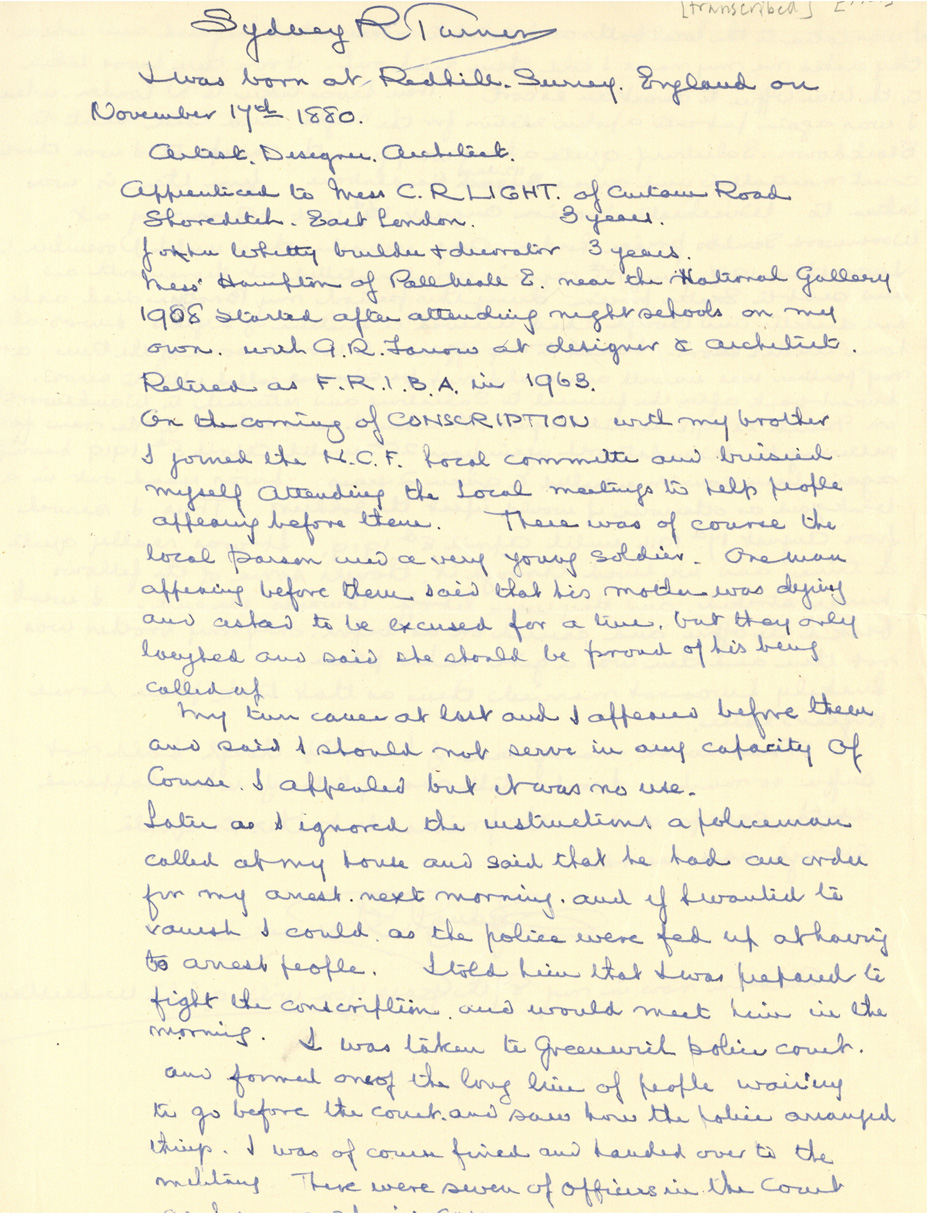 [transcribed]
Sydney R Turner
I was born at Redhill. Surrey. England on
November 17th 1880.
Artist. Designer. Architect.
Apprenticed to Mess C.R LIGHT. of Curtain Road
Shoreditch. East London. 3 years.
John Whetty builder & decorator 3 years.
Mess' Hampton of Pallmall E. near the National Gallery
1908 started after attending night schools on my
own. with G.R. Farrow at designer & architect.
Retired as F.R.I.B.A. in 1963.
On the coming of CONSCRIPTION with my brother
I joined the N.C.F. Local committe and buisied
myself attending the Local meetings to help people
appearing before them. There was of course the
local Parson and a very young soldier. One man
appearing before them said that his mother was dying
and asked to be excused for a time, but they only
laughed and said she should be proud of his being
called up
My turn came at last and I appeared before them
and said I should not serve in any capacity Of
Course. I appealed but it was no use.
Later as I ignored the instructions a policeman
called at my house and said that he had an order
for my arrest. next morning. and if I wanted to
vanish I could. as the police were fed up at having
to arrest people. I told him that I was prepared to
fight the conscription and would meet him in the
morning. I was taken to Greenwich police court.
and formed one of the long line of people waiting
to go before the court. and saw how the police arranged
things. I was of course fined and handed over to the
military There were seven of Officers in the Court